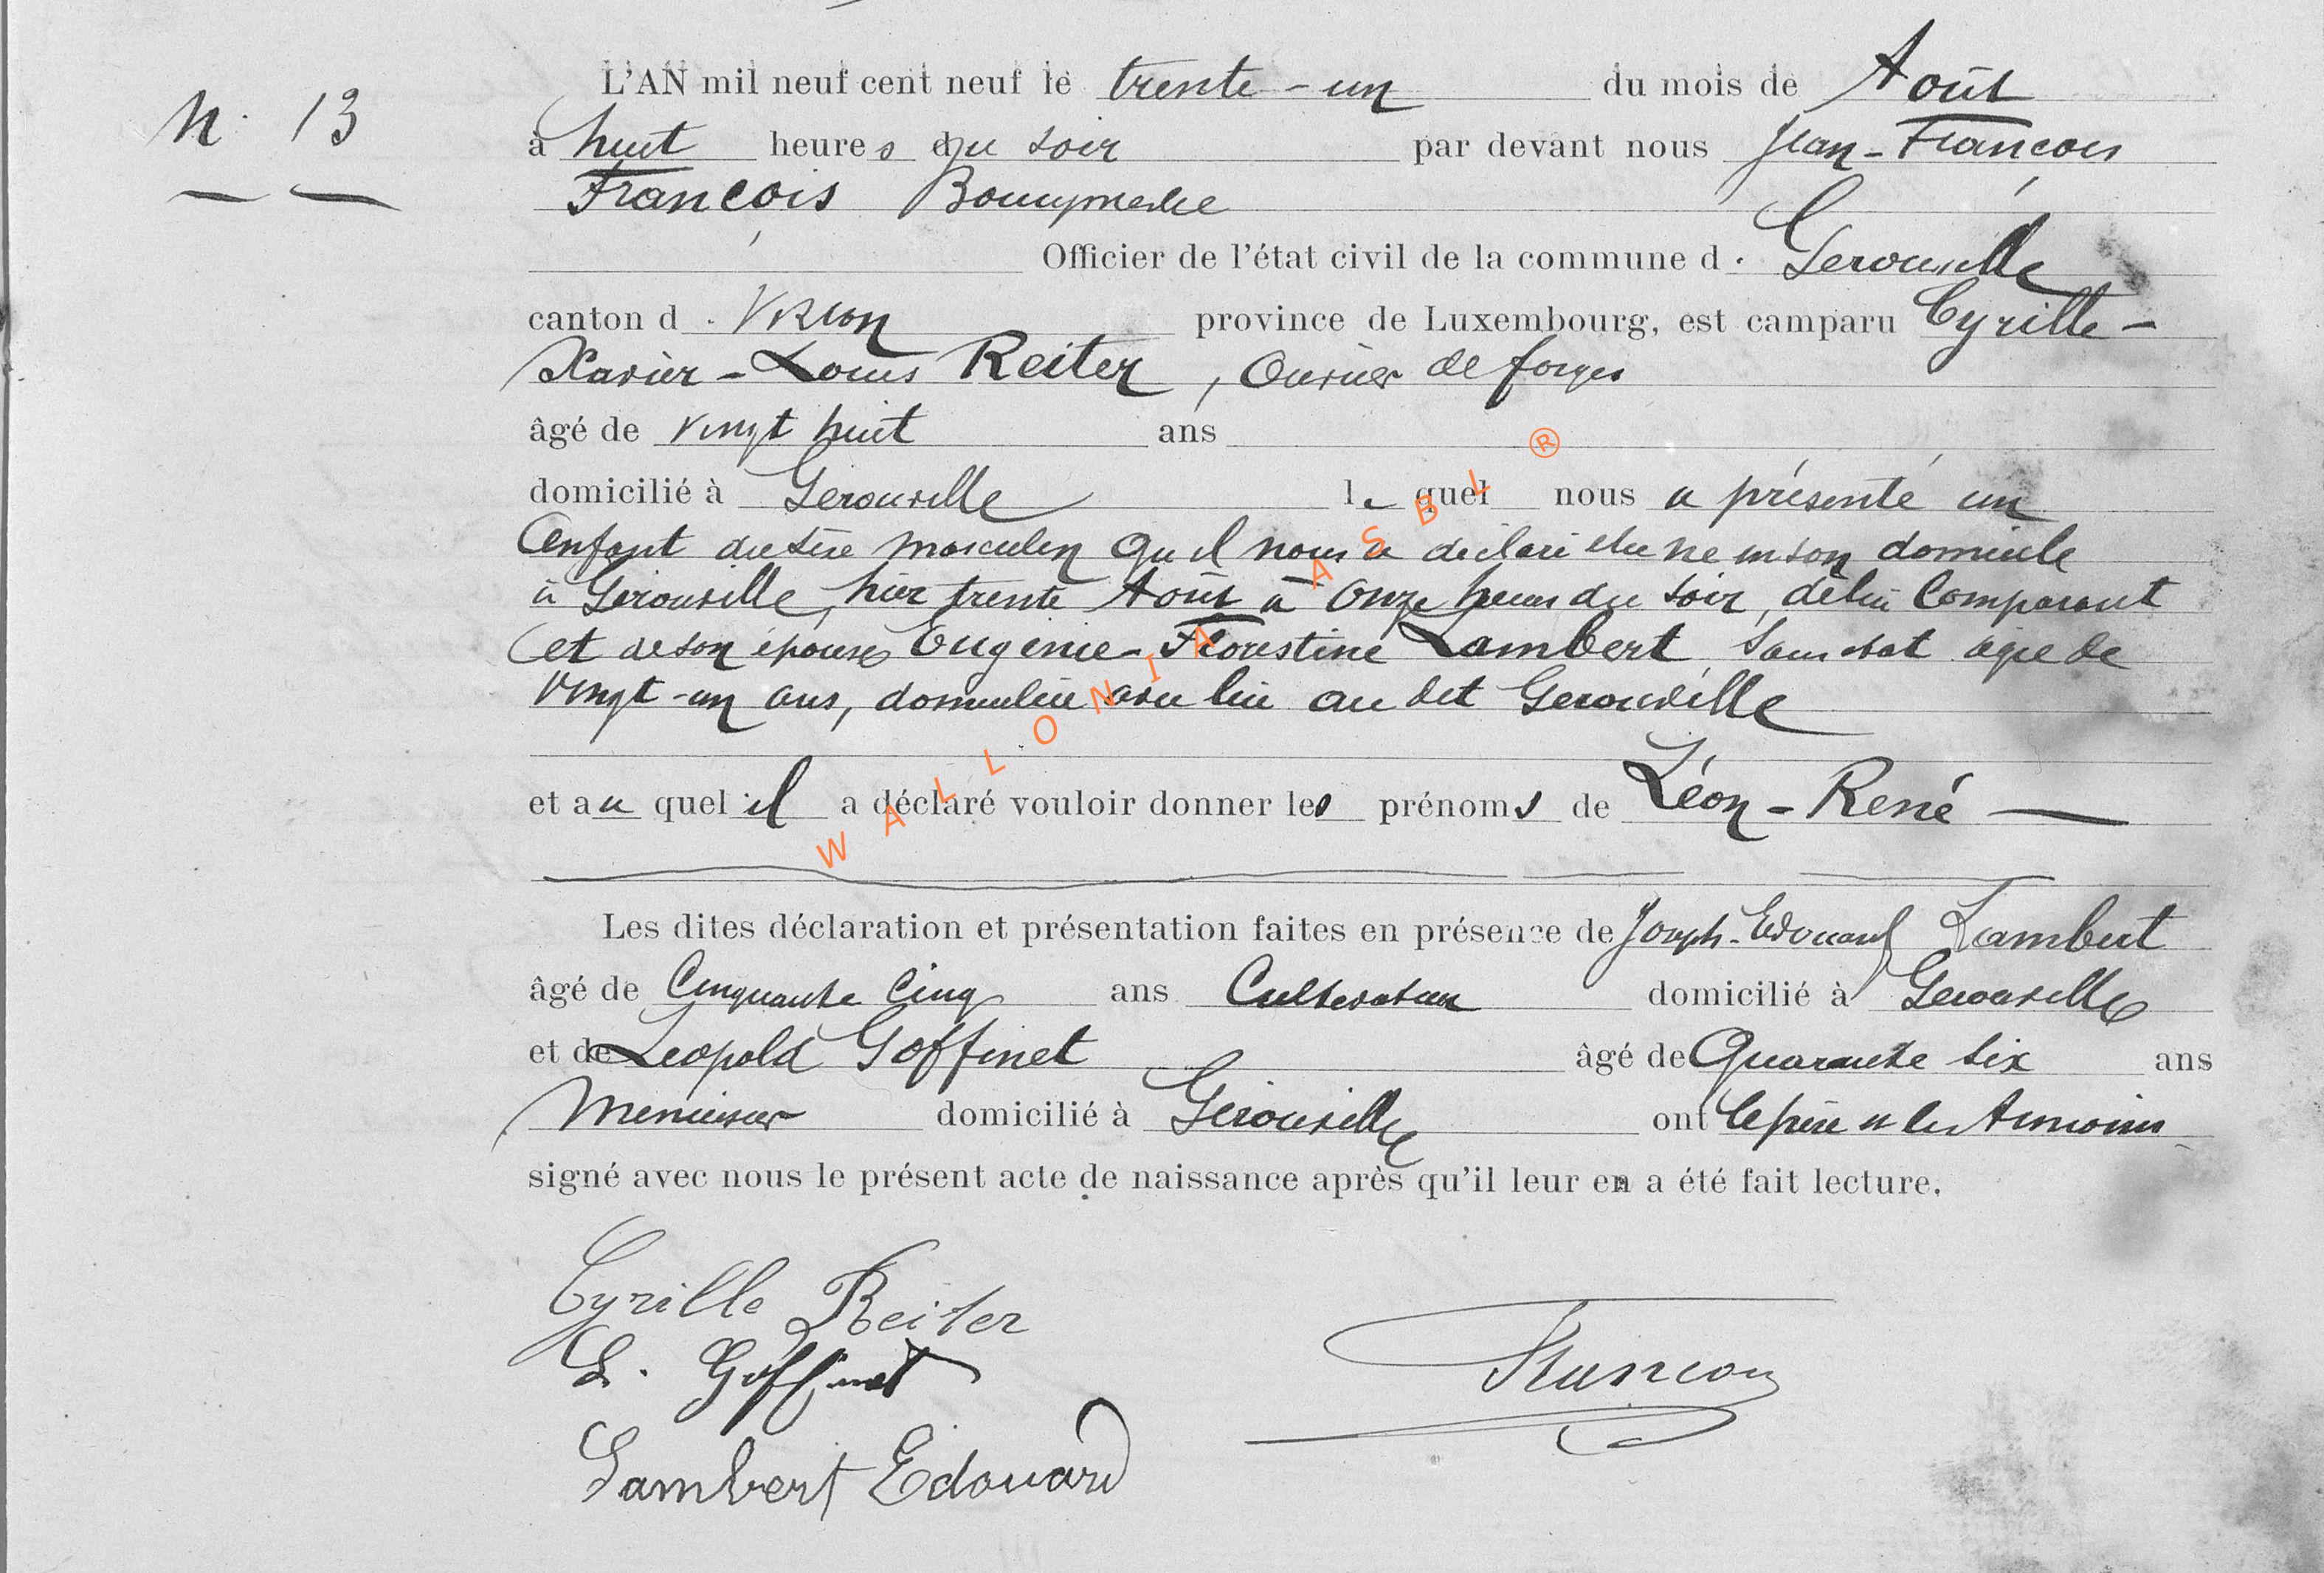 N. 13
L'AN mil neuf cent neuf le trente-un du mois de Août
à huit heures du soir par devant nous Jean-François
François Bourgmestre
Officier de l'état civil de la commune d. Gérouville
canton d. Virton province de Luxembourg, est camparu Cyrille-
Xavier-Louis Reiter, Ouvrier de forges
âgé de vingt huit ans
domicilié à Gérouville le quel nous a présenté un
Enfant du sexe masculin qu'il nous a déclaré être né en son domicile
à Gérouville, hier trente Août à Onze heures du soir, de lui Comparant
et de son épouse Eugénie-Florestine Lambert, sans état âgée de
vingt-un ans, domiciliée avec lui au dit Gérouville
et au quel il a déclaré vouloir donner les prénoms de Léon-René
Les dites déclaration et présentation faites en présence de Joseph-Edouard Lambert
âgé de Cinquante Cinq ans Cultivateur domicilié à Gérouville
et de Léopold Goffinet âgé de Quarante six ans
Menuisier domicilié à Gérouville ont le père et les témoins
signé avec nous le présent acte de naissance après qu'il leur en a été fait lecture.
Cyrille Reiter
L. Goffinet
François
Lambert Edouard
WALLONIA ASBL ®